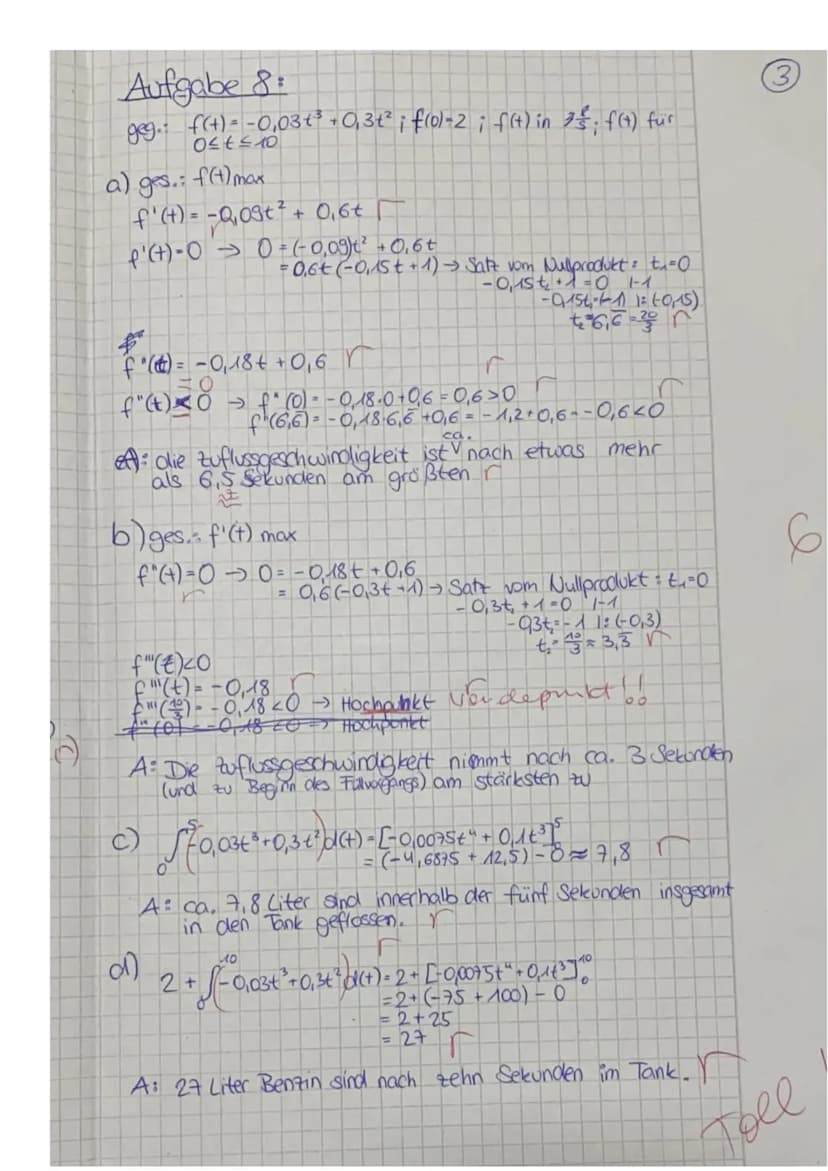 3
Aufgabe 8:
geg.: f(t) = -0,03t³ + 0,3t² ; f(0)=2 ; f(t) in ; f(t) für
0≤t≤10
a) ges.: f(t) max
f'(t) = -0,09t² + 0,6t r
f'(t)=0 → 0 = (-0,09)t² + 0,6t
= 0,6t (-0,15t + 1) → Satz vom Nullprodukt: t₁=0
-0,15t₂ + 1 = 0 |-1
-0,15t₂=(-1) |:(-0,15)
t₂=6,6̅ = 20/3 r
f''(t) = -0,18t + 0,6 r
= 0
f''(t) ≠ 0 → f''(0) = -0,18·0+0,6 = 0,6>0 r
f''(6,6̅) = -0,18·6,6̅ +0,6 = -1,2+0,6 = -0,6<0 r
ca.
A: die zuflussgeschwindigkeit ist nach etwas mehr
als 6,5 Sekunden am größten r
b) ges.: f'(t) max
6
f''(t)=0 → 0 = -0,18t + 0,6
= 0,6(-0,3t+1) → Satz vom Nullprodukt: t₁=0
-0,3t₂ + 1 = 0 |-1
-0,3t₂ = -1 |:(-0,3)
t₂ = 10/3 ≈ 3,3̅ r
f'''(t)<0
f'''(t) = -0,18 r
f'''(10/3) = -0,18 <0 → Hochpunkt Wendepunkt!!
f'''(0) = -0,18 <0 → Hochpunkt
(r)
A: Die zuflussgeschwindigkeit nimmt nach ca. 3 Sekunden
(und zu Beginn des Füllvorgangs) am stärksten zu
c) ₀∫⁵(-0,03t³+0,3t²)d(t) = [-0,0075t⁴ + 0,1t³]⁵₀
= (-4,6875 + 12,5) - 0 ≈ 7,8 r
A: ca. 7,8 Liter sind innerhalb der fünf Sekunden insgesamt
in den Tank geflossen. r
d) 2 + ₀∫¹⁰(-0,03t³+0,3t²)d(t) = 2 + [-0,0075t⁴ + 0,1t³]¹⁰₀
= 2 + (-75 + 100) - 0
= 2 + 25
= 27 r
A: 27 Liter Benzin sind nach zehn Sekunden im Tank. r
Toll !